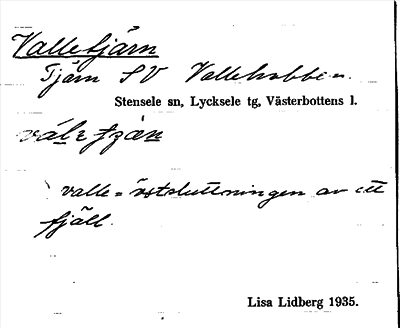 Valletjärn
Tjärn SV Vallehobben.
Stensele sn, Lycksele tg, Västerbottens l.
valle = östsluttningen av ett
fjäll.
Lisa Lidberg 1935.